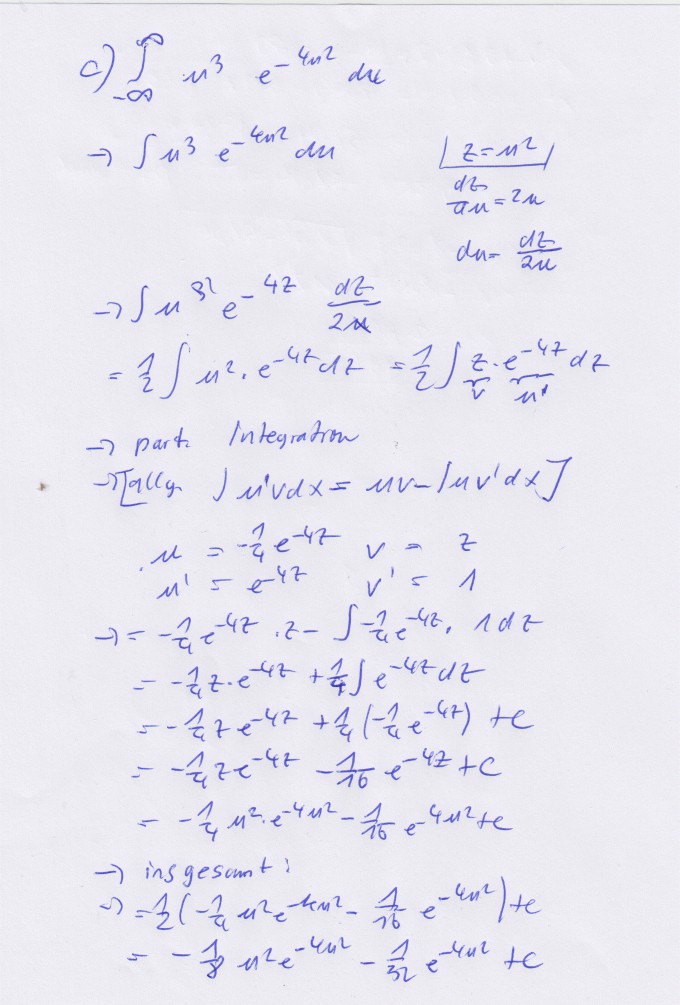 c) ∫_{-∞}^{∞} u³ e^{-4u²} du
→ ∫ u³ e^{-4u²} du | z = u² |
dz/du = 2u
du = dz/2u
→ ∫ u^{32} e^{-4z} dz/2u
= 1/2 ∫ u² · e^{-4z} dz = 1/2 ∫ z · e^{-4z} dz
v u'
→ part. Integration
→ [allg. ∫ u'v dx = uv - ∫ uv' dx]
u = -1/4 e^{-4z} v = z
u' = e^{-4z} v' = 1
→ = -1/4 e^{-4z} · z - ∫ -1/4 e^{-4z} · 1 dz
= -1/4 z · e^{-4z} + 1/4 ∫ e^{-4z} dz
= -1/4 z e^{-4z} + 1/4 (-1/4 e^{-4z}) + c
= -1/4 z e^{-4z} - 1/16 e^{-4z} + c
= -1/4 u² · e^{-4u²} - 1/16 e^{-4u²} + c
→ insgesamt:
→ = 1/2 (-1/4 u² e^{-4u²} - 1/16 e^{-4u²}) + c
= -1/8 u² e^{-4u²} - 1/32 e^{-4u²} + c